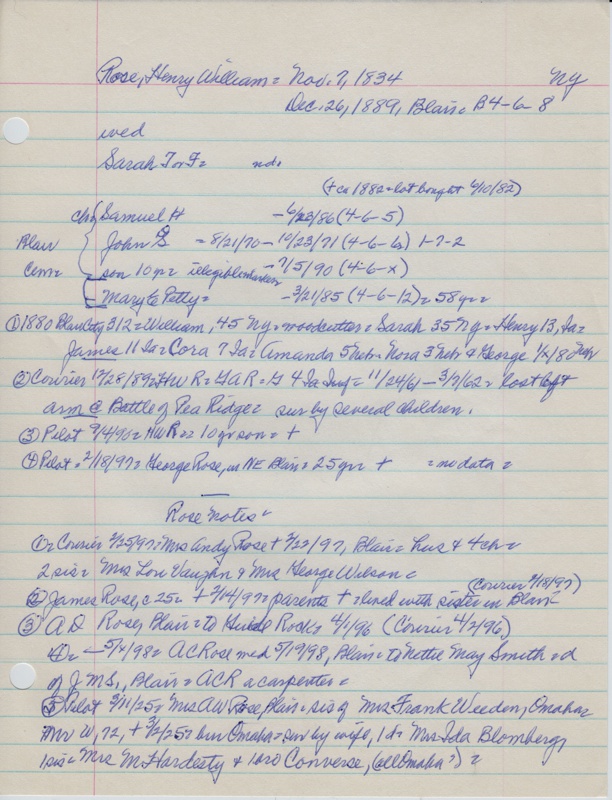 Rose, Henry William = Nov. 7, 1834 Ny
Dec. 26, 1889, Blair = B4-6-8
wed
Sarah T or F = nd.
(+ ca 1882 = lot bought 4/10/82)
chn Samuel H - 6/23/86 (4-6-5)
John G = 8/21/70 - 10/23/71 (4-6-6) 1-7-2
Blair
Cem = son 10 yr = illegible - 7/5/90 (4-6-x)
Mary E Petty = - 3/21/85 (4-6-12) = 58 yr =
① 1880 Blair City 312 = William, 45 Ny = woodcutter = Sarah 35 Ny = Henry 13, Ia =
James 11 Ia = Cora 7 Ia = Amanda 5 Neb = Nora 3 Neb & George 1/12
② Courier 12/28/89 = HW R = GAR = 4 Ia Inf = 11/24/61 - 3/7/62 = lost left
arm @ Battle of Pea Ridge = sur by several children.
③ Pilot 7/4/90 = HW R = 10 yr son = +
④ Pilot = 2/18/97 = George Rose, in NE Blair = 25 yr + = no data =
Rose Notes =
① = Courier 2/25/97 = Mrs Andy Rose + 2/23/97, Blair = hus & 4 ch =
2 sis = Mrs Lou Vaughn & Mrs George Wilson =
(Courier 2/18/97)
② James Rose, c 25 = + 2/14/97 = parents + = lived with sister in Blair
③ A D Rose, Blair = to Guide Rock = 4/1/96 (Courier 4/2/96)
④ = 5/4/98 = AC Rose med 5/19/98, Blair = to Nettie May Smith = d
of J M S., Blair = ACR a carpenter =
⑤ Pilot 3/11/25 = Mrs AW Rose, Blair = sis of Mrs Frank Weeden, Omaha =
Mr W, 72, + 3/2/25 = bur Omaha = sur by wife, 1 d = Mrs Ida Blomberg,
1 sis = Mrs M Hardesty & 1 bro Converse, (all Omaha?) =